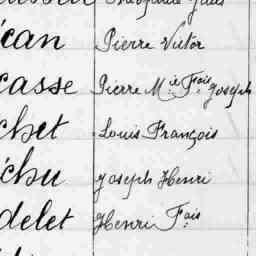 écan Pierre Victor
casse Pierre M.ie F.ois Joseph
chet Louis François
chu Joseph Henri
delet Henri F.ois